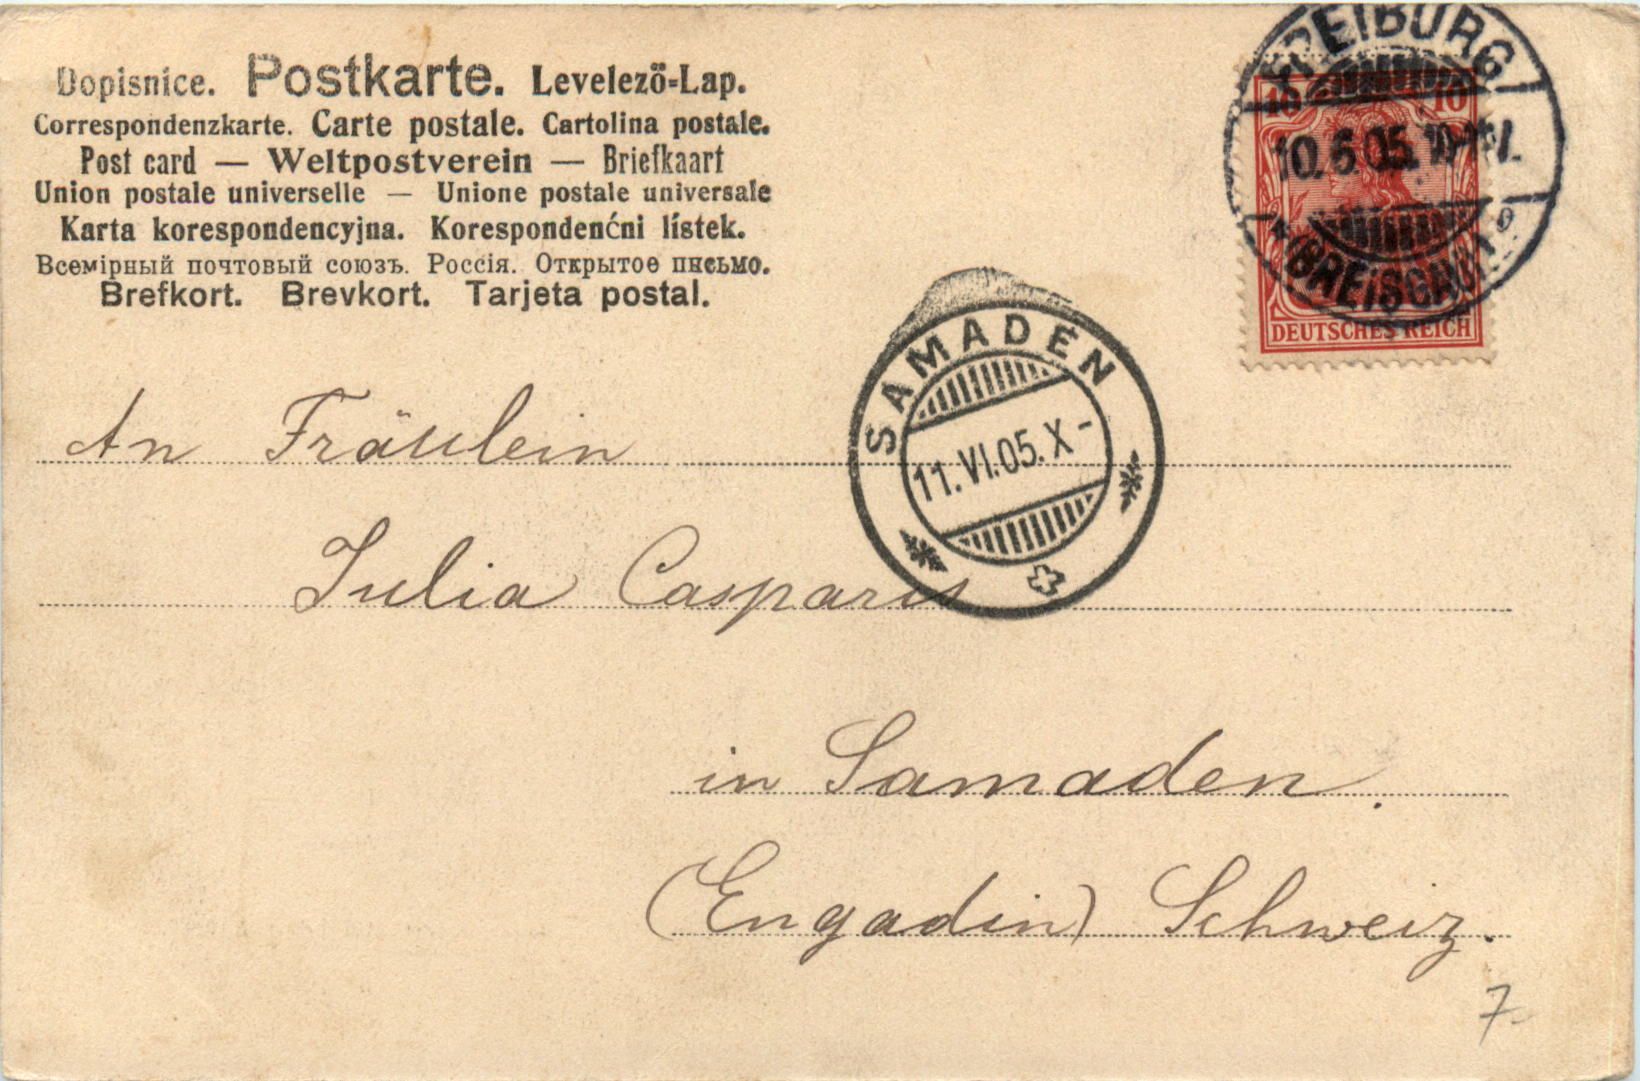 Dopisnice. Postkarte. Levelező-Lap.
Correspondenzkarte. Carte postale. Cartolina postale.
Post card — Weltpostverein — Briefkaart
Union postale universelle — Unione postale universale
Karta korespondencyjna. Korespondenćni lístek.
Всемірный почтовый союзъ. Россія. Открытое письмо.
Brefkort. Brevkort. Tarjeta postal.
FREIBURG
10 10
10.6.05. 10-11V.
* (BREISGAU)
DEUTSCHES REICH
SAMADEN
11.VI.05.X-
An Fräulein
Julia Casparis
in Samaden.
(Engadin) Schweiz.
7-